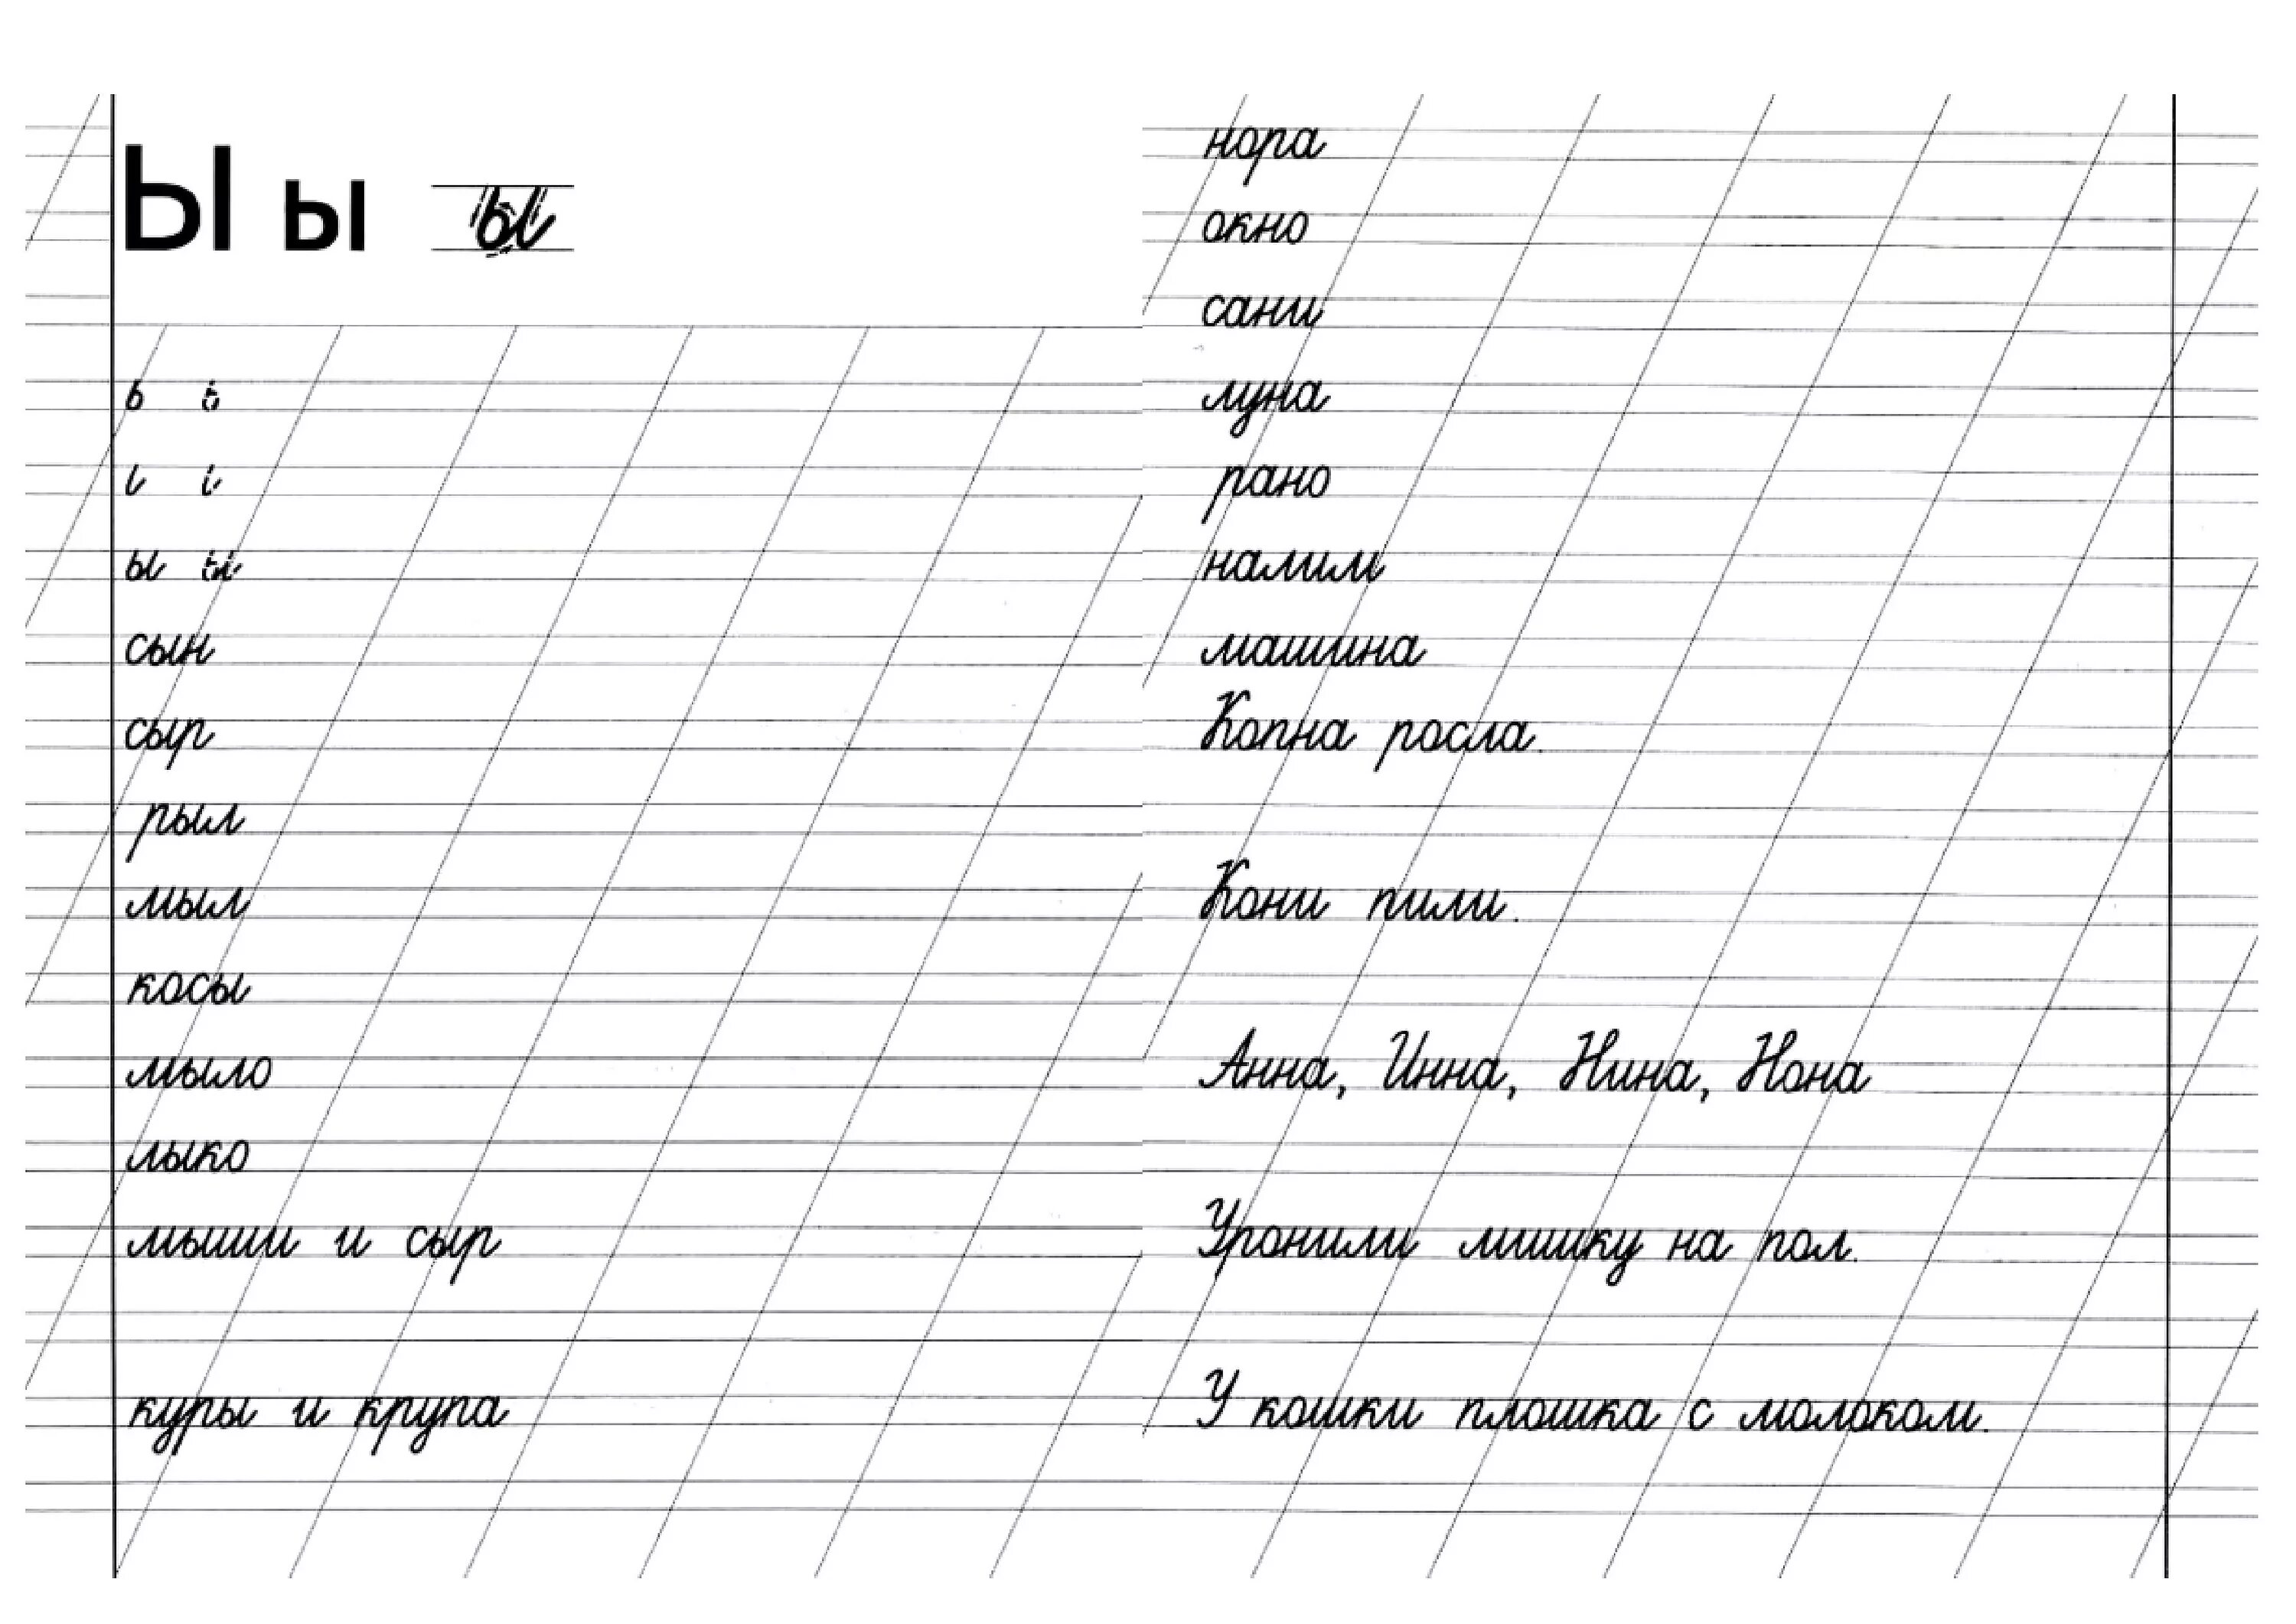 Ы ы ы
ь ь
ı ı
ы ы
сын
сыр
рыл
мыл
косы
мыло
лыко
мыши и сыр
куры и крупа
нора
окно
сани
луна
рано
налим
машина
Копна росла.
Кони пили.
Анна, Инна, Нина, Нона
Уронили мишку на пол.
У кошки плошка с молоком.